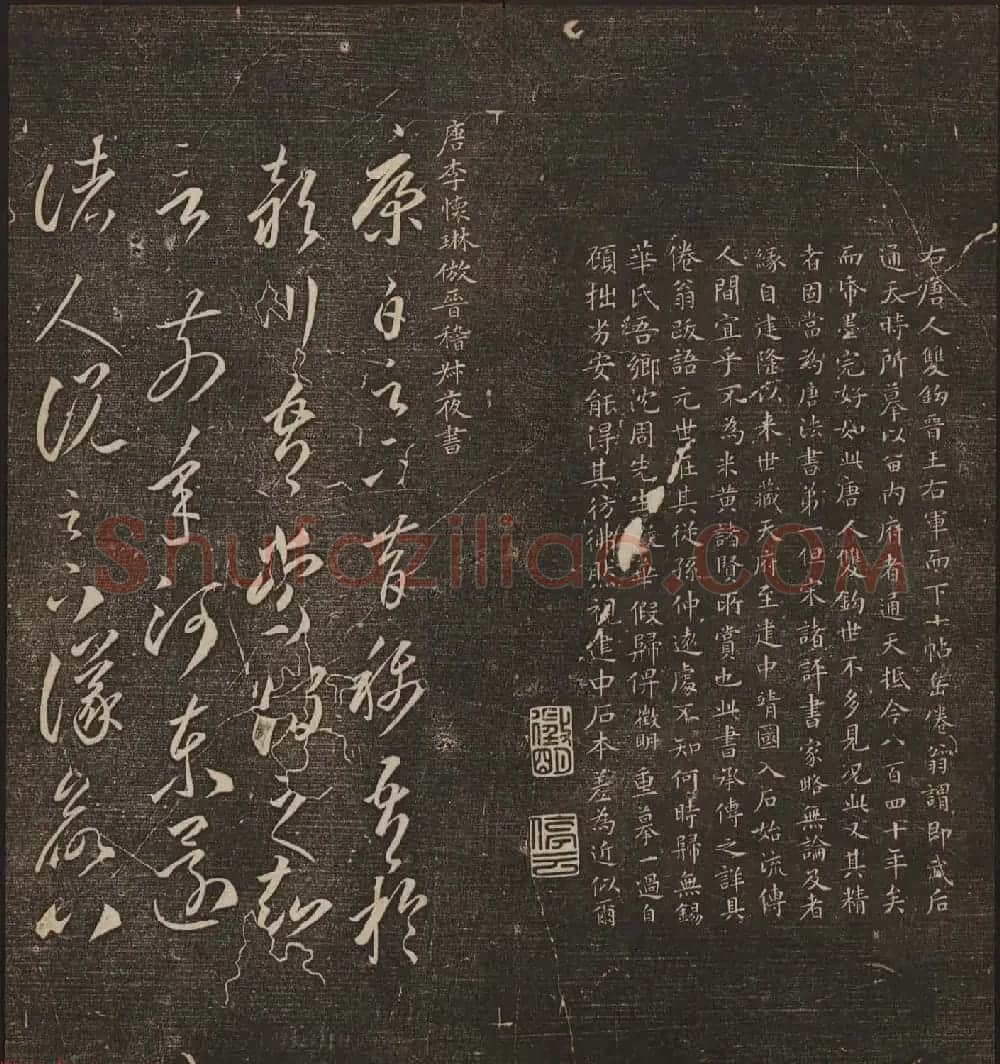 右唐人雙鉤晉王右軍而下十帖岳倦翁謂即武后
通天時所摹以留內府者通天抵今八百四十年矣
而帋墨完好如此唐人雙鉤世不多見況此又其精
者固當為唐法書弟一但宋諸評書家略無論及者
緣自建隆以来世藏天府至建中靖國入石始流傳
人間宜乎不為米黃諸賢所賞也此書承傳之詳具
倦翁跋語元世在其從孫仲遠處不知何時歸無錫
華氏吾鄉沈周先生假歸俾徵明重摹一過自
顧拙劣安能得其彷彿然視建中石本差為近似爾
徵明
停云
唐李懷琳倣晉稽叔夜書
康白足下昔稱吾於
潁川吾嘗謂之知
言前年河東還
諸人說足下議欲以
Shufaziliao.COM